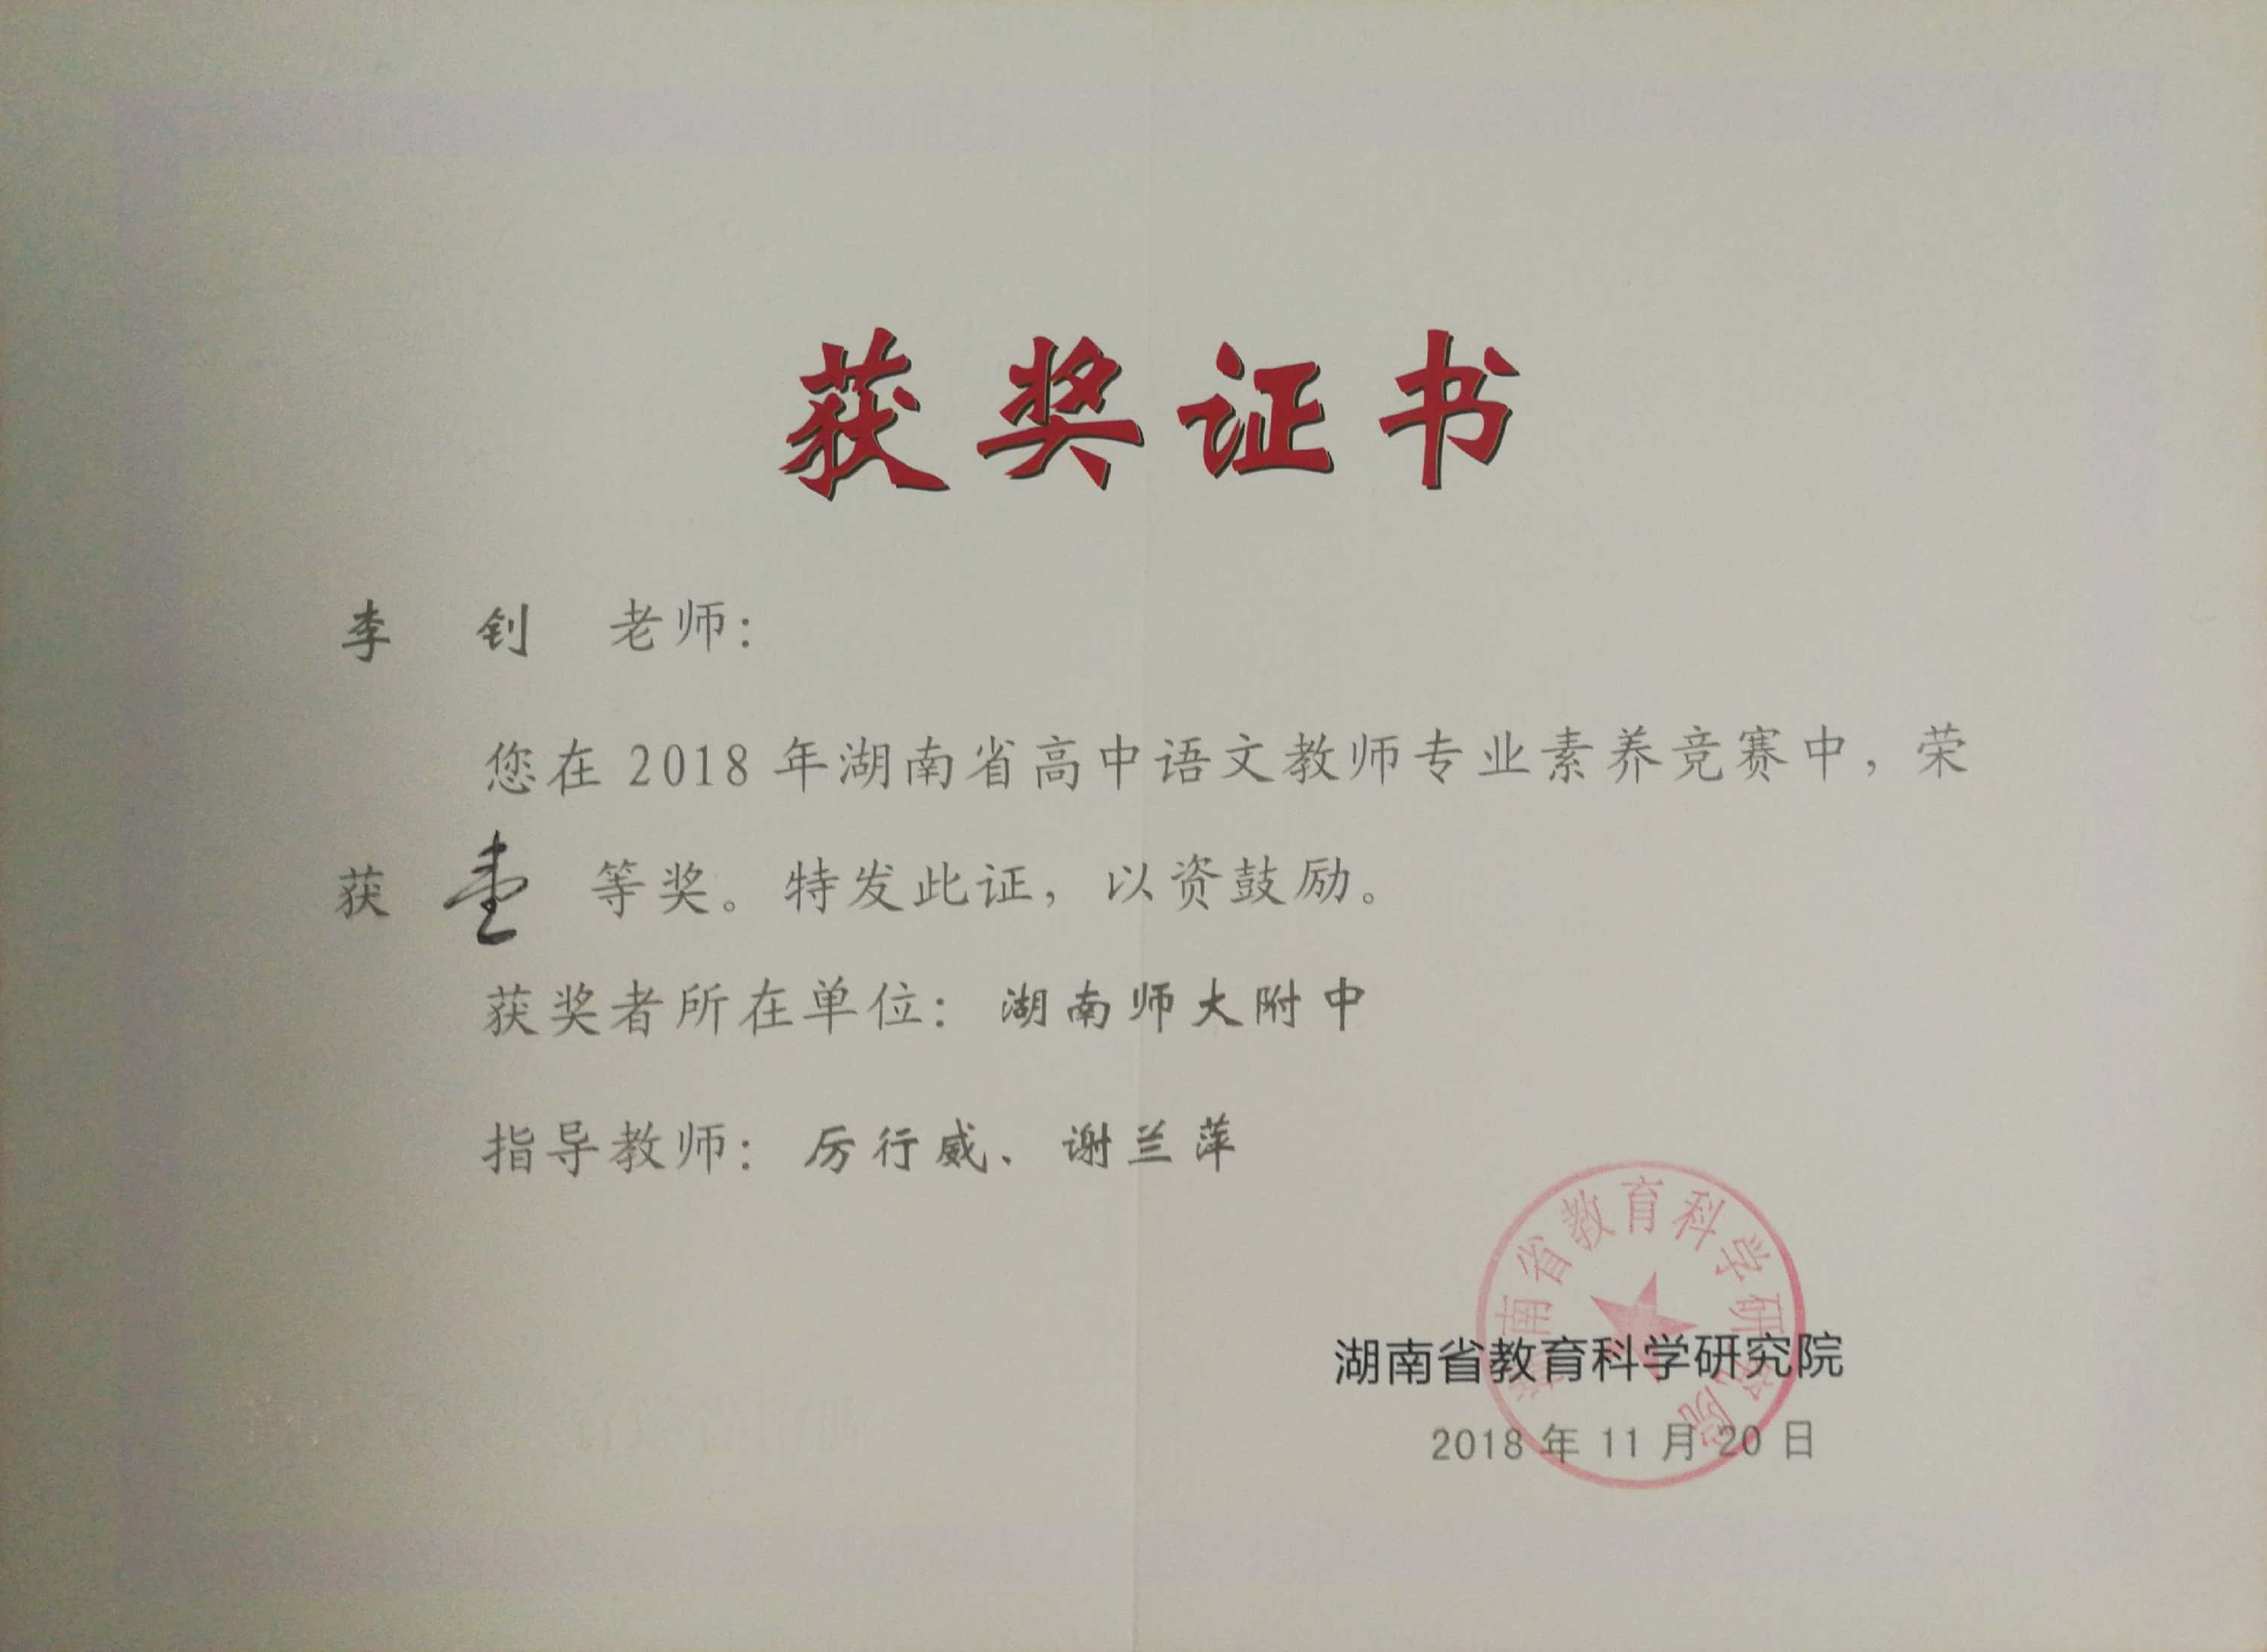 获奖证书
李 钊 老师：
您在 2018 年湖南省高中语文教师专业素养竞赛中，荣
获 壹 等奖。特发此证，以资鼓励。
获奖者所在单位：湖南师大附中
指导教师：厉行威、谢兰萍
湖南省教育科学研究院
湖南省教育科学研究院
2018 年 11 月 20 日